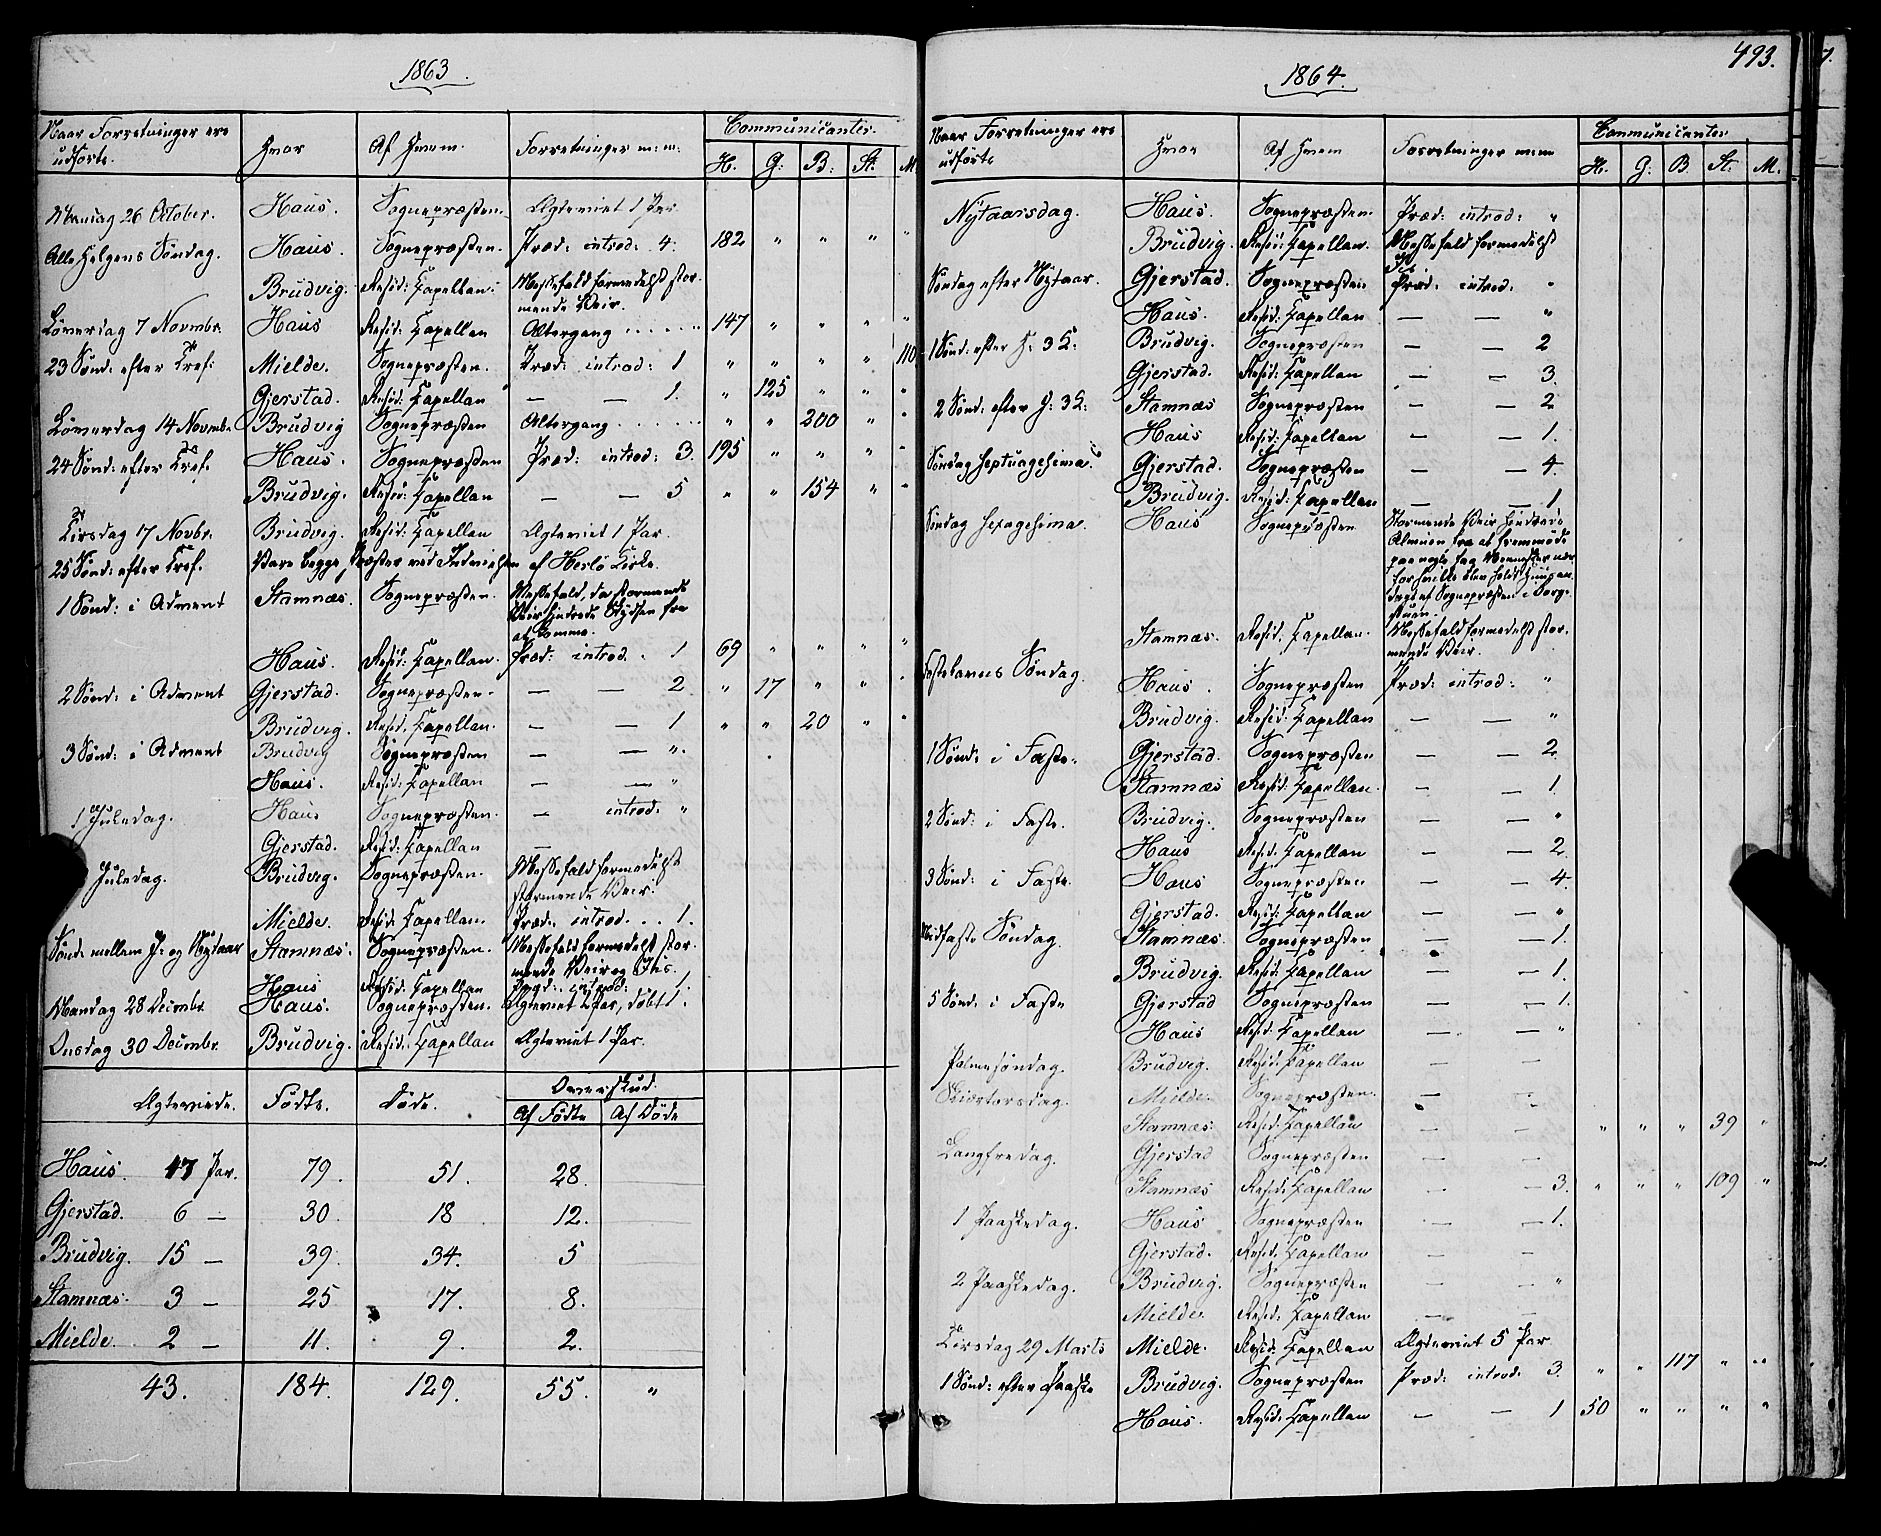 1863.
Naar Forretninger ere udførte. Hvor Af Hvem. Forretninger m: m: Communicanter.
H. G: B: St: M.
Mandag 26 October. Haus. Sognepræsten. Ægteviet 1 Par
Alle Helgens Søndag. Haus. Sognepræsten. Præd: introd: 4. 182 " " " "
Brudvig. Resid: Capellan. Messefald formedelst stor-
mende Veir.
Løverdag 7 Novmbr. Haus Resid: Capellan Altergang . . . . . . 147 " " " "
23 Sønd: efter Tref: Mielde. Sognepræsten. Præd: introd: 1 " " " " 110
Gjerstad. Resid: Capellan — — 1. " 125 " " "
Løverdag 14 Novmbr. Brudvig Sognepræsten Altergang . . . . . . " " 200 " "
24 Sønd: efter Tref. Haus. Sognepræsten Præd: introd: 3. 195 " " " "
Brudvig. Resid: Capellan — — 5 " " 154 " "
Tirsdag 17 Novbr. Brudvig. Resid: Capellan Ægteviet 1 Par.
25 Sønd: efter Tref. Vare begge Præster ved Indvielsen af Herlø Kirke.
1 Sønd: i Advent Stamnæs. Sognepræsten. Messefald, da stormende
Veir hindrede Skydsen fra
at komme.
Haus. Resid: Capellan. Præd: introd. . 1 69 " " " "
2 Sønd: i Advent Gjerstad. Sognepræsten. — — 2 " 17 " " "
Brudvig. Resid. Capellan. — — 1 " " 20 " "
3 Sønd: i Advent Brudvig Sognepræsten — — ".
Haus. Resid: Capellan — — "
1 Juledag. Haus Sognepræsten. — introd: "
Gjerstad. Resid: Capellan —
Juledag. Brudvig. Sognepræsten. Messefald formedelst
stormende Veir.
Mielde. Resid: Capellan. Præd: introd. . . 1.
Sønd: mellem J: og Nytaar Stamnæs. Sognepræsten. Messefald formedelst stor-
mende Veir og Iis.
Haus Resid: Capellan Præd: introd: 1.
Mandag 28 Decmbr. Haus. Sognepræsten. Ægteviet 2 Par, døbt 1.
Onsdag 30 Decmbr. Brudvig. Resid: Capellan Ægteviet 1 Par.
Ægteviede. Fødte. Døde. Overskud.
Af Fødte Af Døde
Haus. 17 Par. 79. 51. 28.
Gjerstad. 6 — 30. 18 12.
Brudvig. 15 — 39. 34. 5
Stamnæs. 3 — 25 17. 8.
Mielde. 2 — 11. 9. 2.
43. 184. 129. 55. "
1864.
493.
Naar Forretninger ere udførte Hvor Af Hvem Forretninger m: m Communicanter
H. G. B. St. M.
Nytaarsdag. Haus. Sognepræsten. Præd: introd: "
Brudvig. Resid: Capellan. Messefald formedelst
Søndag efter Nytaar. Gjerstad. Sognepræsten Præd: introd: "
Haus. Resid: Capellan — — "
1 Sønd: efter H: 3 K: Brudvig. Sognepræsten — — 2
Gjerstad. Resid: Capellan — — 3.
2 Sønd: efter H: 3 K: Stamnæs Sognepræsten — — 2
Haus Resid: Capellan — — 1.
Søndag Septuagesima. Gjerstad. Sognepræsten — — 4
Brudvig. Resid: Capellan — — 1
Søndag Sexagesima Haus Sognepræsten Stormende Veir hindrede
Almuen fra at fremmøde
paa nogle faa Mennesker nær
for hvilke blev holdt Huusan-
dagt af Sognepræsten i Borge-
stuen.
Stamnæs. Resid: Capellan. Messefald formedelst stor-
mende Veir.
Fastelavns Søndag. Haus. Sognepræsten Præd: introd: "
Brudvig. Resid: Capellan — — "
1 Sønd: i Faste. Gjerstad. Sognepræsten — — 2.
Stamnæs Resid: Capellan. — — 1.
2 Sønd: i Faste. Brudvig. Sognepræsten — — "
Haus Resid: Capellan — — 2.
3 Sønd: i Faste. Haus Sognepræsten — — 4.
Gjerstad. Resid: Capellan — — "
Midfaste Søndag. Stamnæs. Sognepræsten — — 1.
Brudvig. Resid: Capellan — — 1.
5 Sønd: i Faste Gjerstad Sognepræsten — — 1.
Haus Resid: Capellan — — "
Palmesøndag. Brudvig. Resid: Capellan — —
Skiærtorsdag. Mielde. Sognepræsten. — —
Stamnæs. Resid: Capellan — — " " " 39 "
Langfredag. Gjerstad Sognepræsten — —
Stamnæs Resid: Capellan — — 3. " " " 109 "
1 Paaskedag. Haus Sognepræsten — — 1.
Gjerstad. Resid: Capellan — —
2 Paaskedag. Brudvig. Sognepræsten — — "
Mielde. Resid: Capellan — —
Tirsdag 29 Marts Mielde. Resid: Capellan Ægteviet 5 Par
1 Sønd: efter Paaske Brudvig. Sognepræsten Præd: introd: 3. " " 117 " "
Haus. Resid: Capellan — — 1 50 " " " "